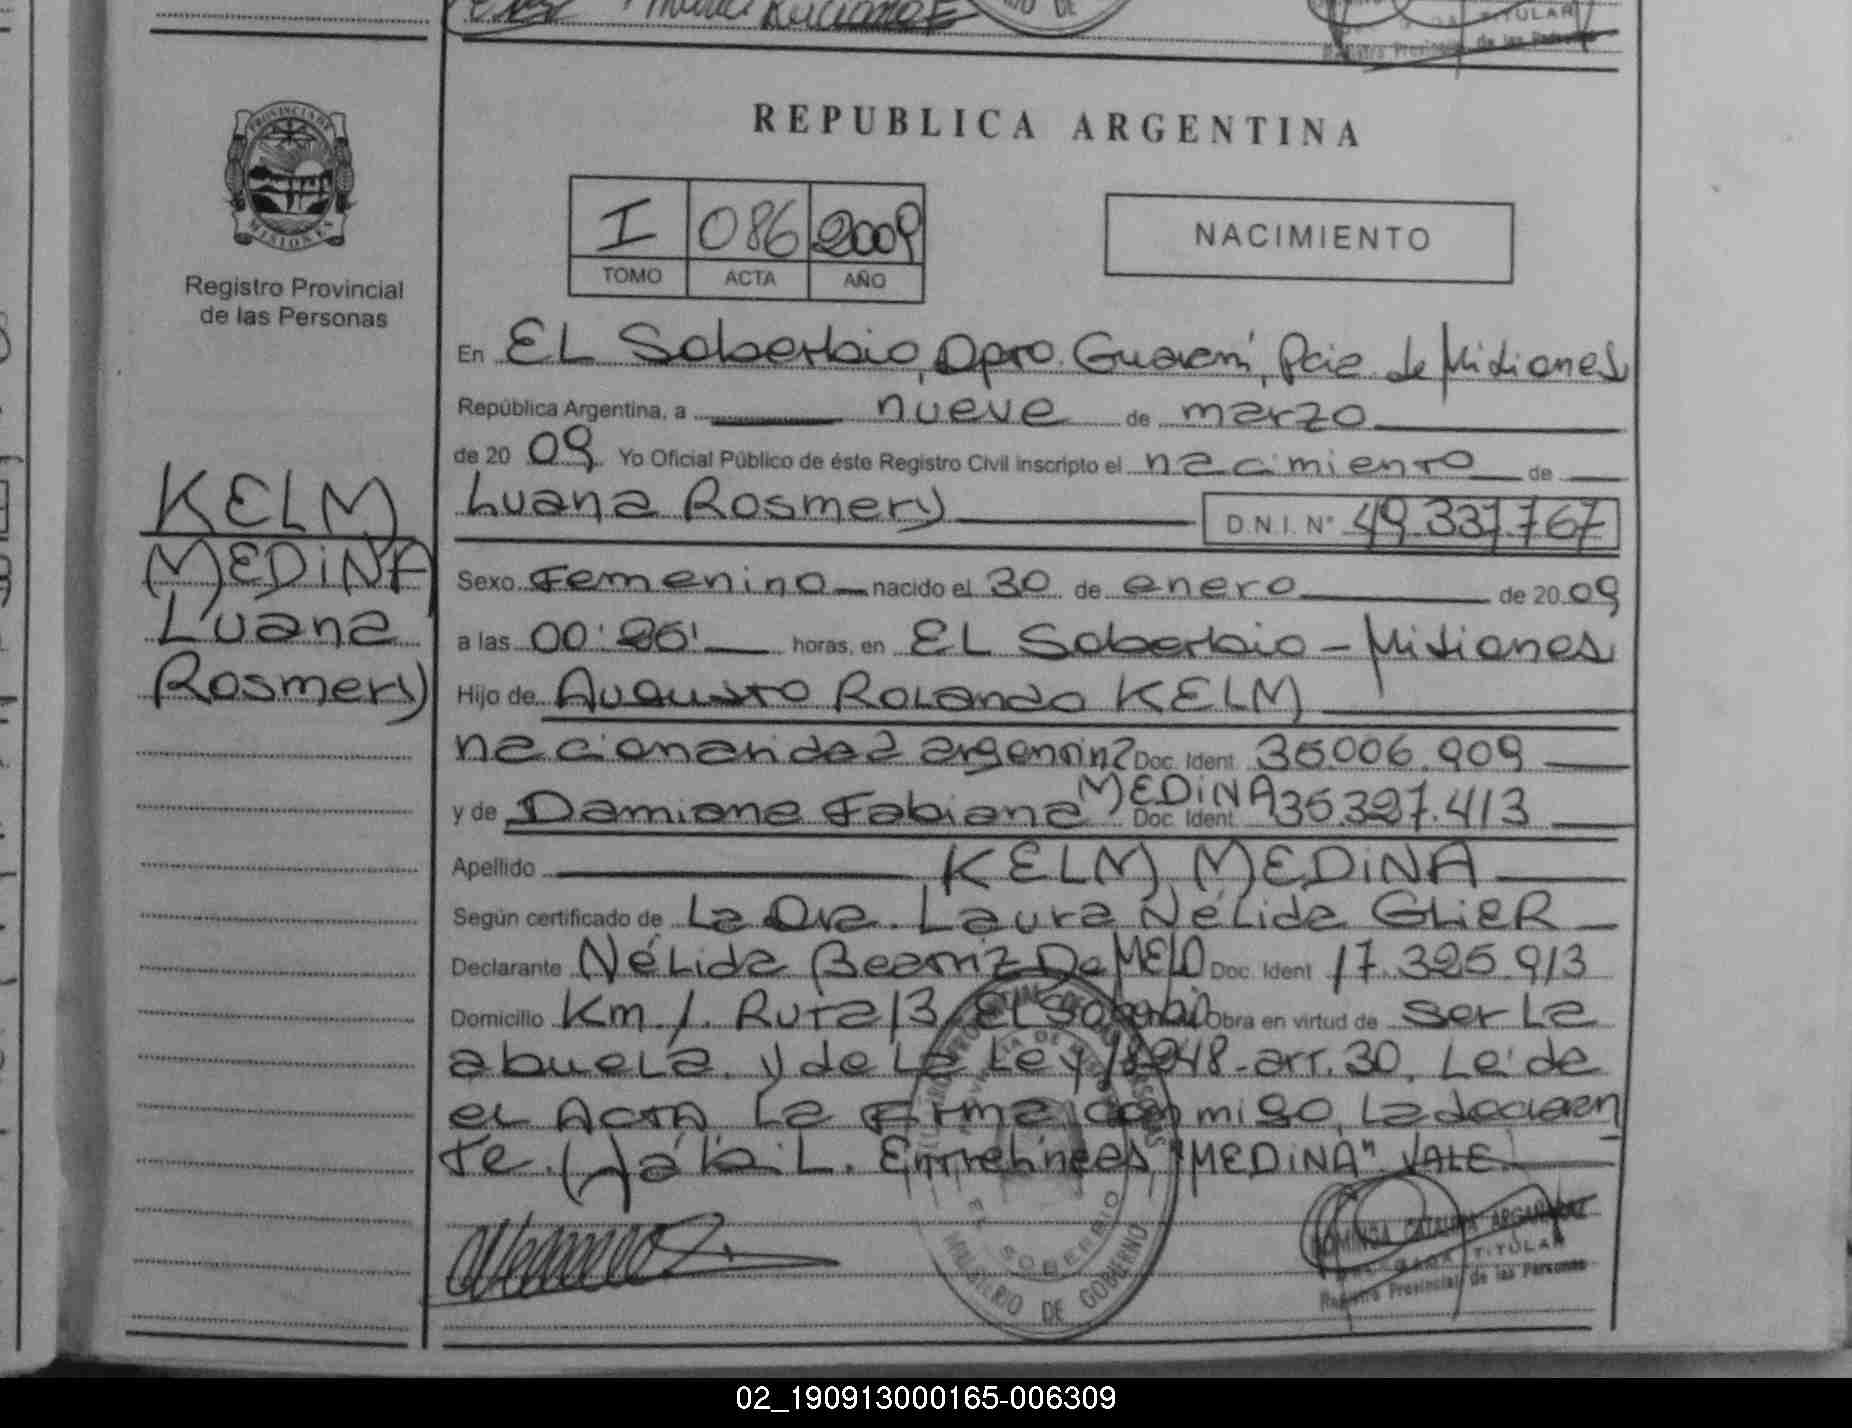 PROVINCIA DE
MISIONES
Registro Provincial
de las Personas
KELM
MEDINA
Luana
Rosmery
TITULAR
Registro Provincial de las Personas
REPUBLICA ARGENTINA
I 086 2009
TOMO ACTA AÑO
NACIMIENTO
En EL Soberbio, Dpto. Guaraní, Pcia. de Misiones
República Argentina, a nueve de marzo
de 2009 Yo Oficial Público de éste Registro Civil inscripto el nacimiento de
Luana Rosmery D.N.I. N° 49.337.767
Sexo Femenino nacido el 30 de enero de 2009
a las horas, en EL Soberbio - Misiones
Hijo de Augusto Rolando KELM
nacionalidad argentina Doc. Ident. 35006.909
y de Damiana Fabiana MEDINA Doc. Ident. 35.327.413
Apellido KELM MEDINA
Según certificado de La Dra. Laura Nélida GLIER
Declarante Nélida Beatriz De MELO Doc. Ident 17.325.913
Domicilio Km 1. Ruta 13 El Soberbio Obra en virtud de ser la
abuela. y de La Ley 18248-art. 30. Leída
el Acta La Firma conmigo, La declaran
te. Entrelíneas "MEDINA" VALE.
EL SOBERBIO
MINISTERIO DE GOBIERNO
TITULAR
Registro Provincial de las Personas
02_190913000165-006309